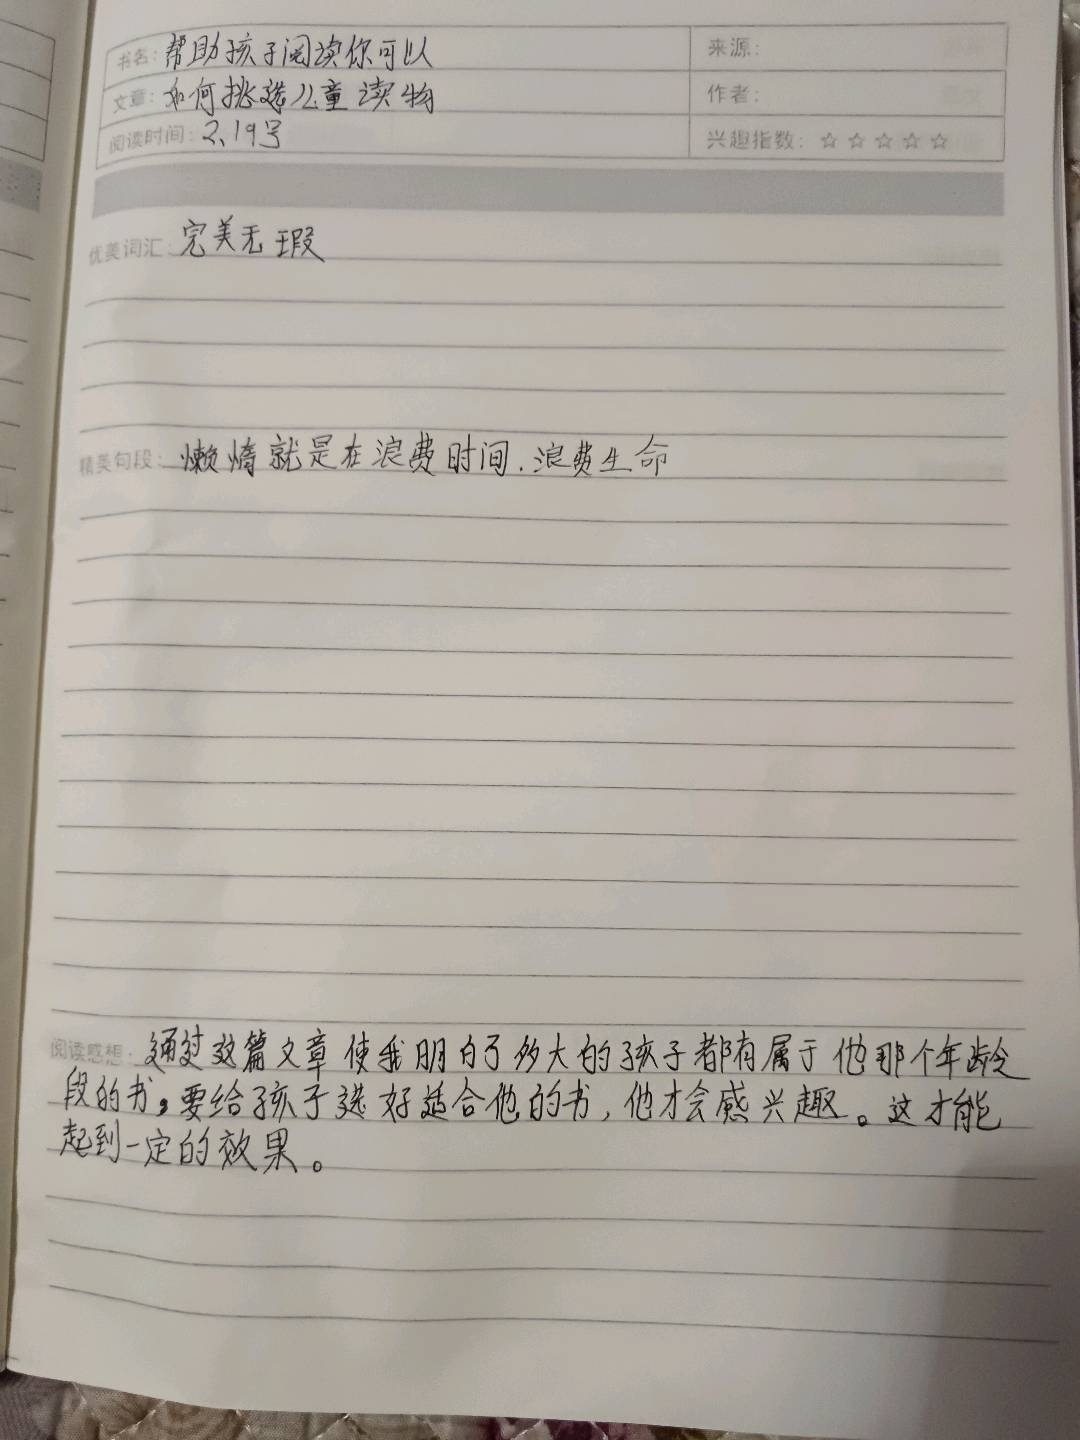 书名：帮助孩子阅读你可以 来源：
文章：如何挑选儿童读物 作者：
阅读时间：2.19号 兴趣指数：☆☆☆☆☆
优美词汇：完美无瑕
精美句段：懒惰就是在浪费时间.浪费生命
阅读感想：通过这篇文章使我明白了多大的孩子都有属于他那个年龄
段的书。要给孩子选好适合他的书，他才会感兴趣。这才能
起到一定的效果。